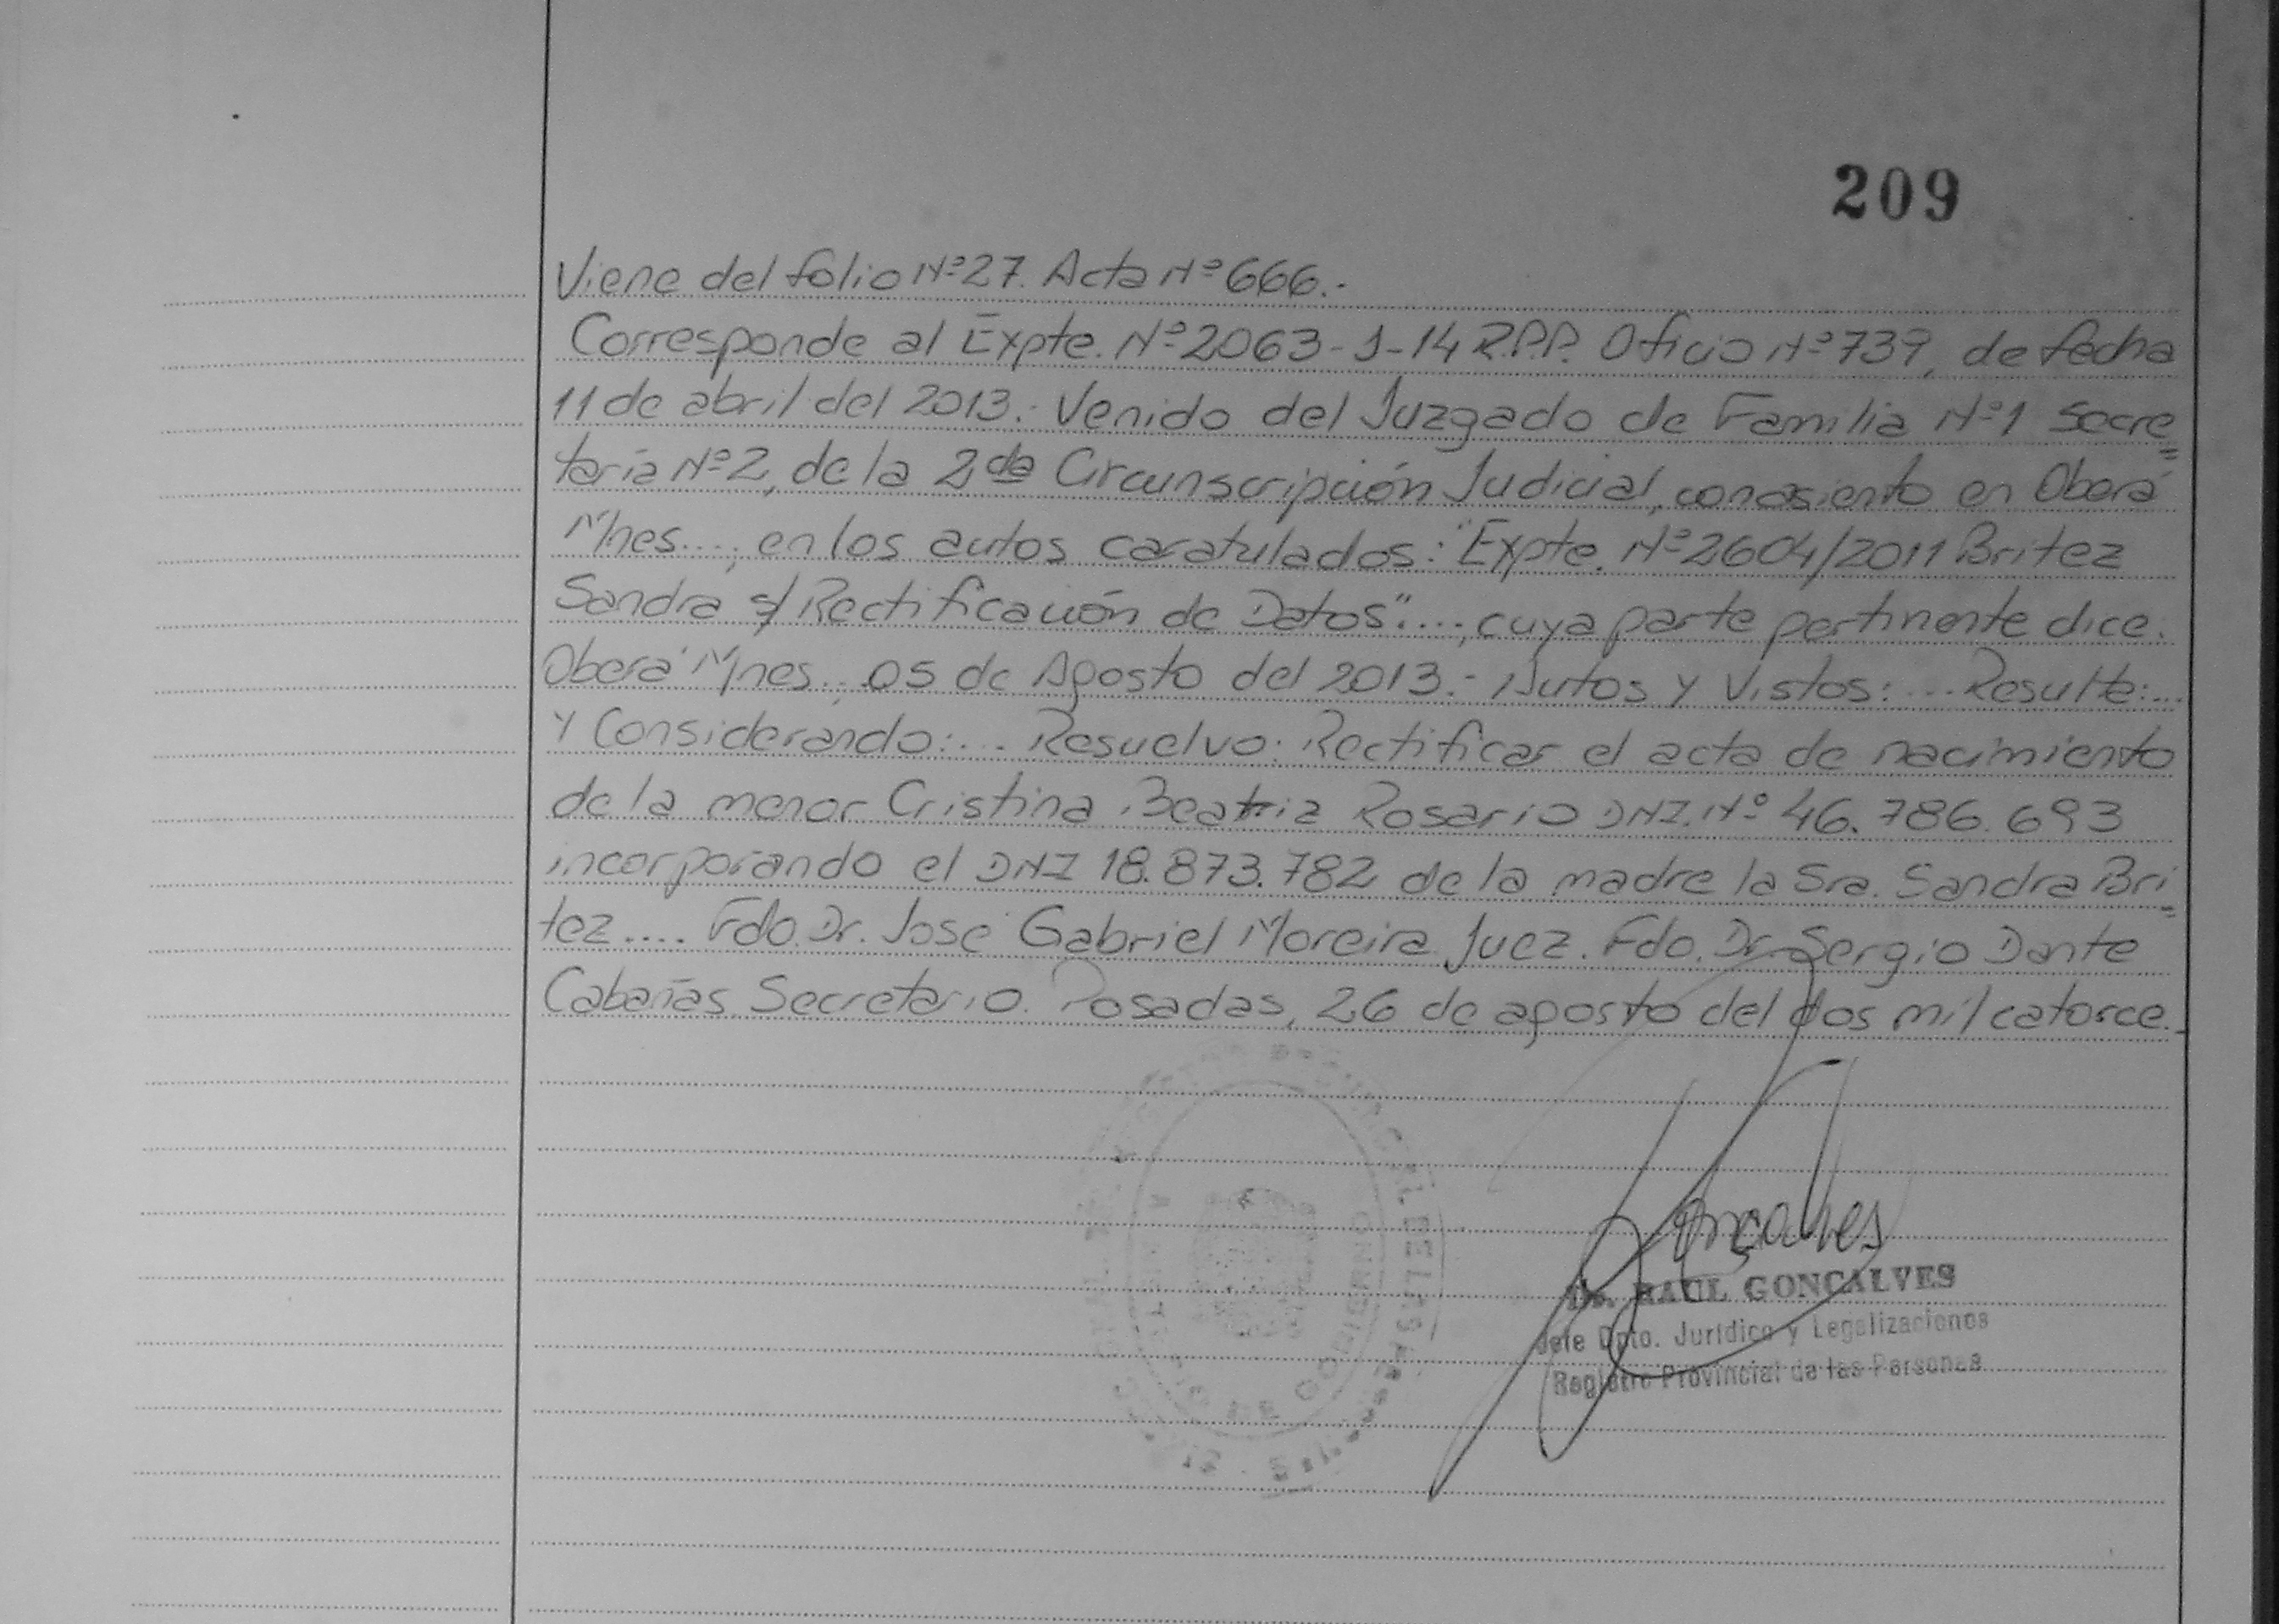 209
Viene del folio Nº27. Acta Nº666.-
Corresponde al Expte. Nº2063-J-14 R.P.P. Oficio Nº739, de fecha
11 de abril del 2013.- Venido del Juzgado de Familia Nº1 Secre=
taría Nº2, de la 2da Circunscripción Judicial, con asiento en Oberá
Mnes...., en los autos caratulados: "Expte. Nº2604/2011 Britez
Sandra s/ Rectificación de Datos"...., cuya parte pertinente dice.
Oberá Mnes..., 05 de Agosto del 2013.- Autos y Vistos:... Resulte:...
y Considerando:... Resuelvo: Rectificar el acta de nacimiento
de la menor Cristina Beatriz Rosario DNI. Nº 46.786.693
incorporando el DNI 18.873.782 de la madre la Sra. Sandra Bri=
tez.... Fdo. Dr. José Gabriel Moreira Juez. Fdo. Dr. Sergio Dante
Cabañas Secretario. Posadas, 26 de agosto del dos mil catorce.-
Gonçalves
Dr. RAUL GONÇALVES
Jefe Dpto. Jurídico y Legalizaciones
Registro Provincial de las Personas
GOBIERNO